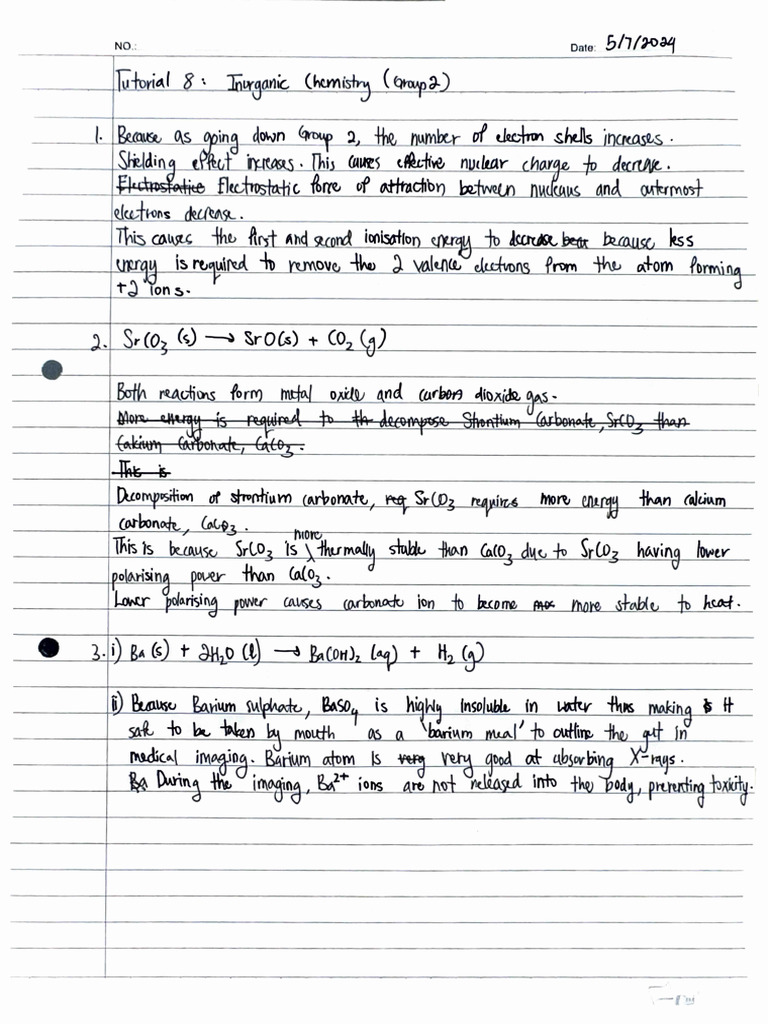 NO.: Date: 5/7/2024
Tutorial 8: Inorganic Chemistry (Group 2)
1. Because as going down Group 2, the number of electron shells increases.
Shielding effect increases. This causes effective nuclear charge to decrease.
Electrostatic Electrostatic force of attraction between nucleaus and outermost
electrons decrease.
This causes the first and second ionisation energy to decrease because less
energy is required to remove the 2 valence electrons from the atom forming
+2 ions.
2. SrCO₃ (s) → SrO(s) + CO₂ (g)
Both reactions form metal oxide and carbon dioxide gas.
More energy is required to th decompose Strontium Carbonate, SrCO₃ than
Calcium Carbonate, CaCO₃.
This is
Decomposition of strontium carbonate, req SrCO₃ requires more energy than calcium
carbonate, CaCO₃.
This is because SrCO₃ is more thermally stable than CaCO₃ due to SrCO₃ having lower
polarising power than CaCO₃.
Lower polarising power causes carbonate ion to become more stable to heat.
3. i) Ba (s) + 2H₂O (l) → Ba(OH)₂ (aq) + H₂ (g)
ii) Because Barium sulphate, BaSO₄ is highly insoluble in water thus making it
safe to be taken by mouth as a 'barium meal' to outline the gut in
medical imaging. Barium atom is very very good at absorbing X-rays.
Ba During the imaging, Ba²⁺ ions are not released into the body, preventing toxicity.